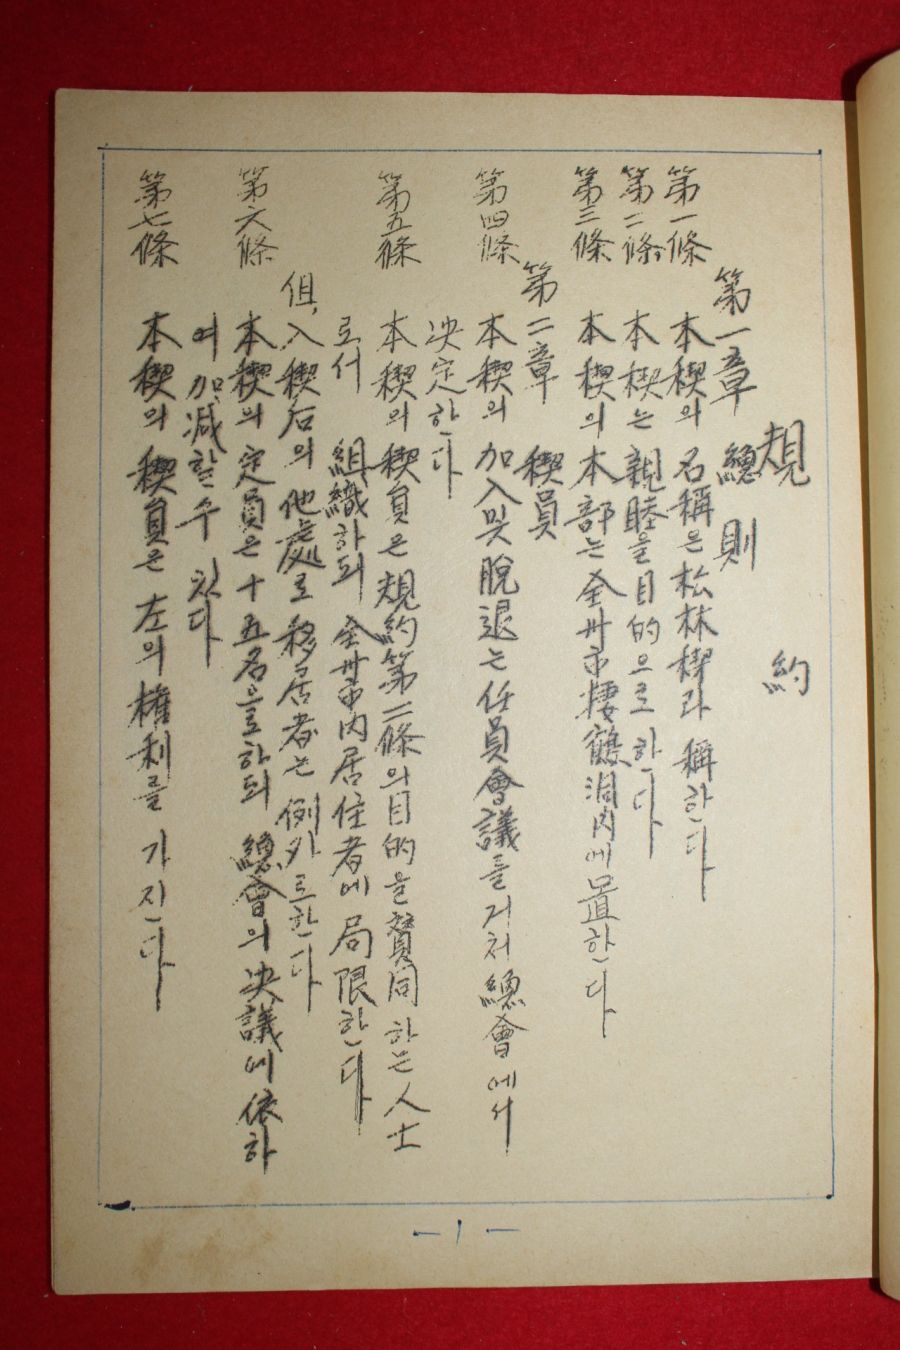 規約
第一章 總則
第一條 本稧의 名稱은 松林稧라 稱한다
第二條 本稧는 親睦을 目的으로 한다
第三條 本稧의 本部는 全州市 棲鶴洞內에 置한다
第二章 稧員
第四條 本稧의 加入 및 脫退는 任員會議를 거처 總會에서
决定한다
第五條 本稧의 稧員은 規約第二條의 目的을 賛同하는 人士
로서 組織하되 全州市內居住者에 局限한다
但, 入稧后의 他處로 移居者는 例外로한다
第六條 本稧의 定員은 十五名으로하되 總會의 决議에 依하
여 加,減할수 있다
第七條 本稧의 稧員은 左의 權利를 가진다
—1—